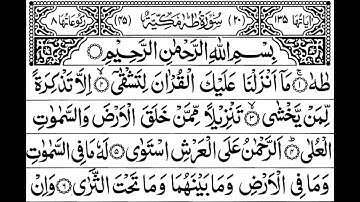 اٰيَاتُهَا ١٣٥ (٢٠) سُوْرَةُ طٰهٰ مَكِّيَّةٌ (٤٥) رُكُوْعَاتُهَا ٨
بِسْمِ اللّٰهِ الرَّحْمٰنِ الرَّحِيْمِ
طٰهٰ ۚ﴿١﴾ مَاۤ اَنْزَلْنَا عَلَيْكَ الْقُرْاٰنَ لِتَشْقٰٓى ۙ﴿٢﴾ اِلَّا تَذْكِرَةً
لِّمَنْ يَّخْشٰى ۙ﴿٣﴾ تَنْزِيْلًا مِّمَّنْ خَلَقَ الْاَرْضَ وَالسَّمٰوٰتِ
الْعُلٰى ؕ﴿٤﴾ اَلرَّحْمٰنُ عَلَى الْعَرْشِ اسْتَوٰى ﴿٥﴾ لَهٗ مَا فِى السَّمٰوٰتِ
وَمَا فِى الْاَرْضِ وَمَا بَيْنَهُمَا وَمَا تَحْتَ الثَّرٰى ﴿٦﴾ وَاِنْ